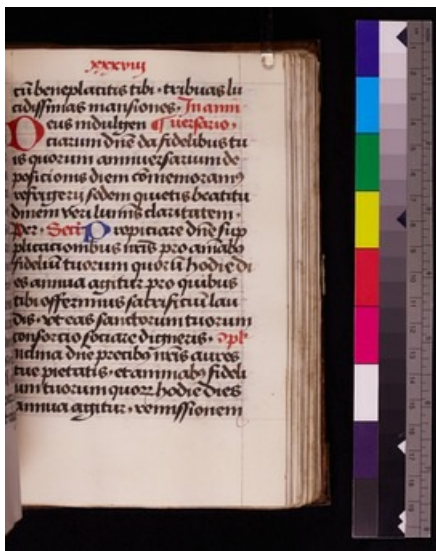 xxxviij
cū beneplacitis tibi · tribuas lu
cidissimas mansiones · In anni
Deus indulgen ¶ uersario ·
ciarum dne da fidelibus tu
is quorum anniuersarium de
posicionis diem cōmemoramꝰ
refrigerij sedem quietis beatitu
dinem veri luminis claritatem ·
Per · Secͥ Propiciare dne sup
plicacionibus nr̄is pro aīabꝰ
fidelium tuorum quorū hodie di
es annua agitur pro quibus
tibi offerimus sacrificiū lau
dis · vt eas sanctorum tuorum
consorcio sociare digneris · 
nclina dne precibꝰ nr̄is aures
tue pietatis · et animabꝰ fideli
um tuorum quorꝝ hodie dies
annua agitur · remissionem